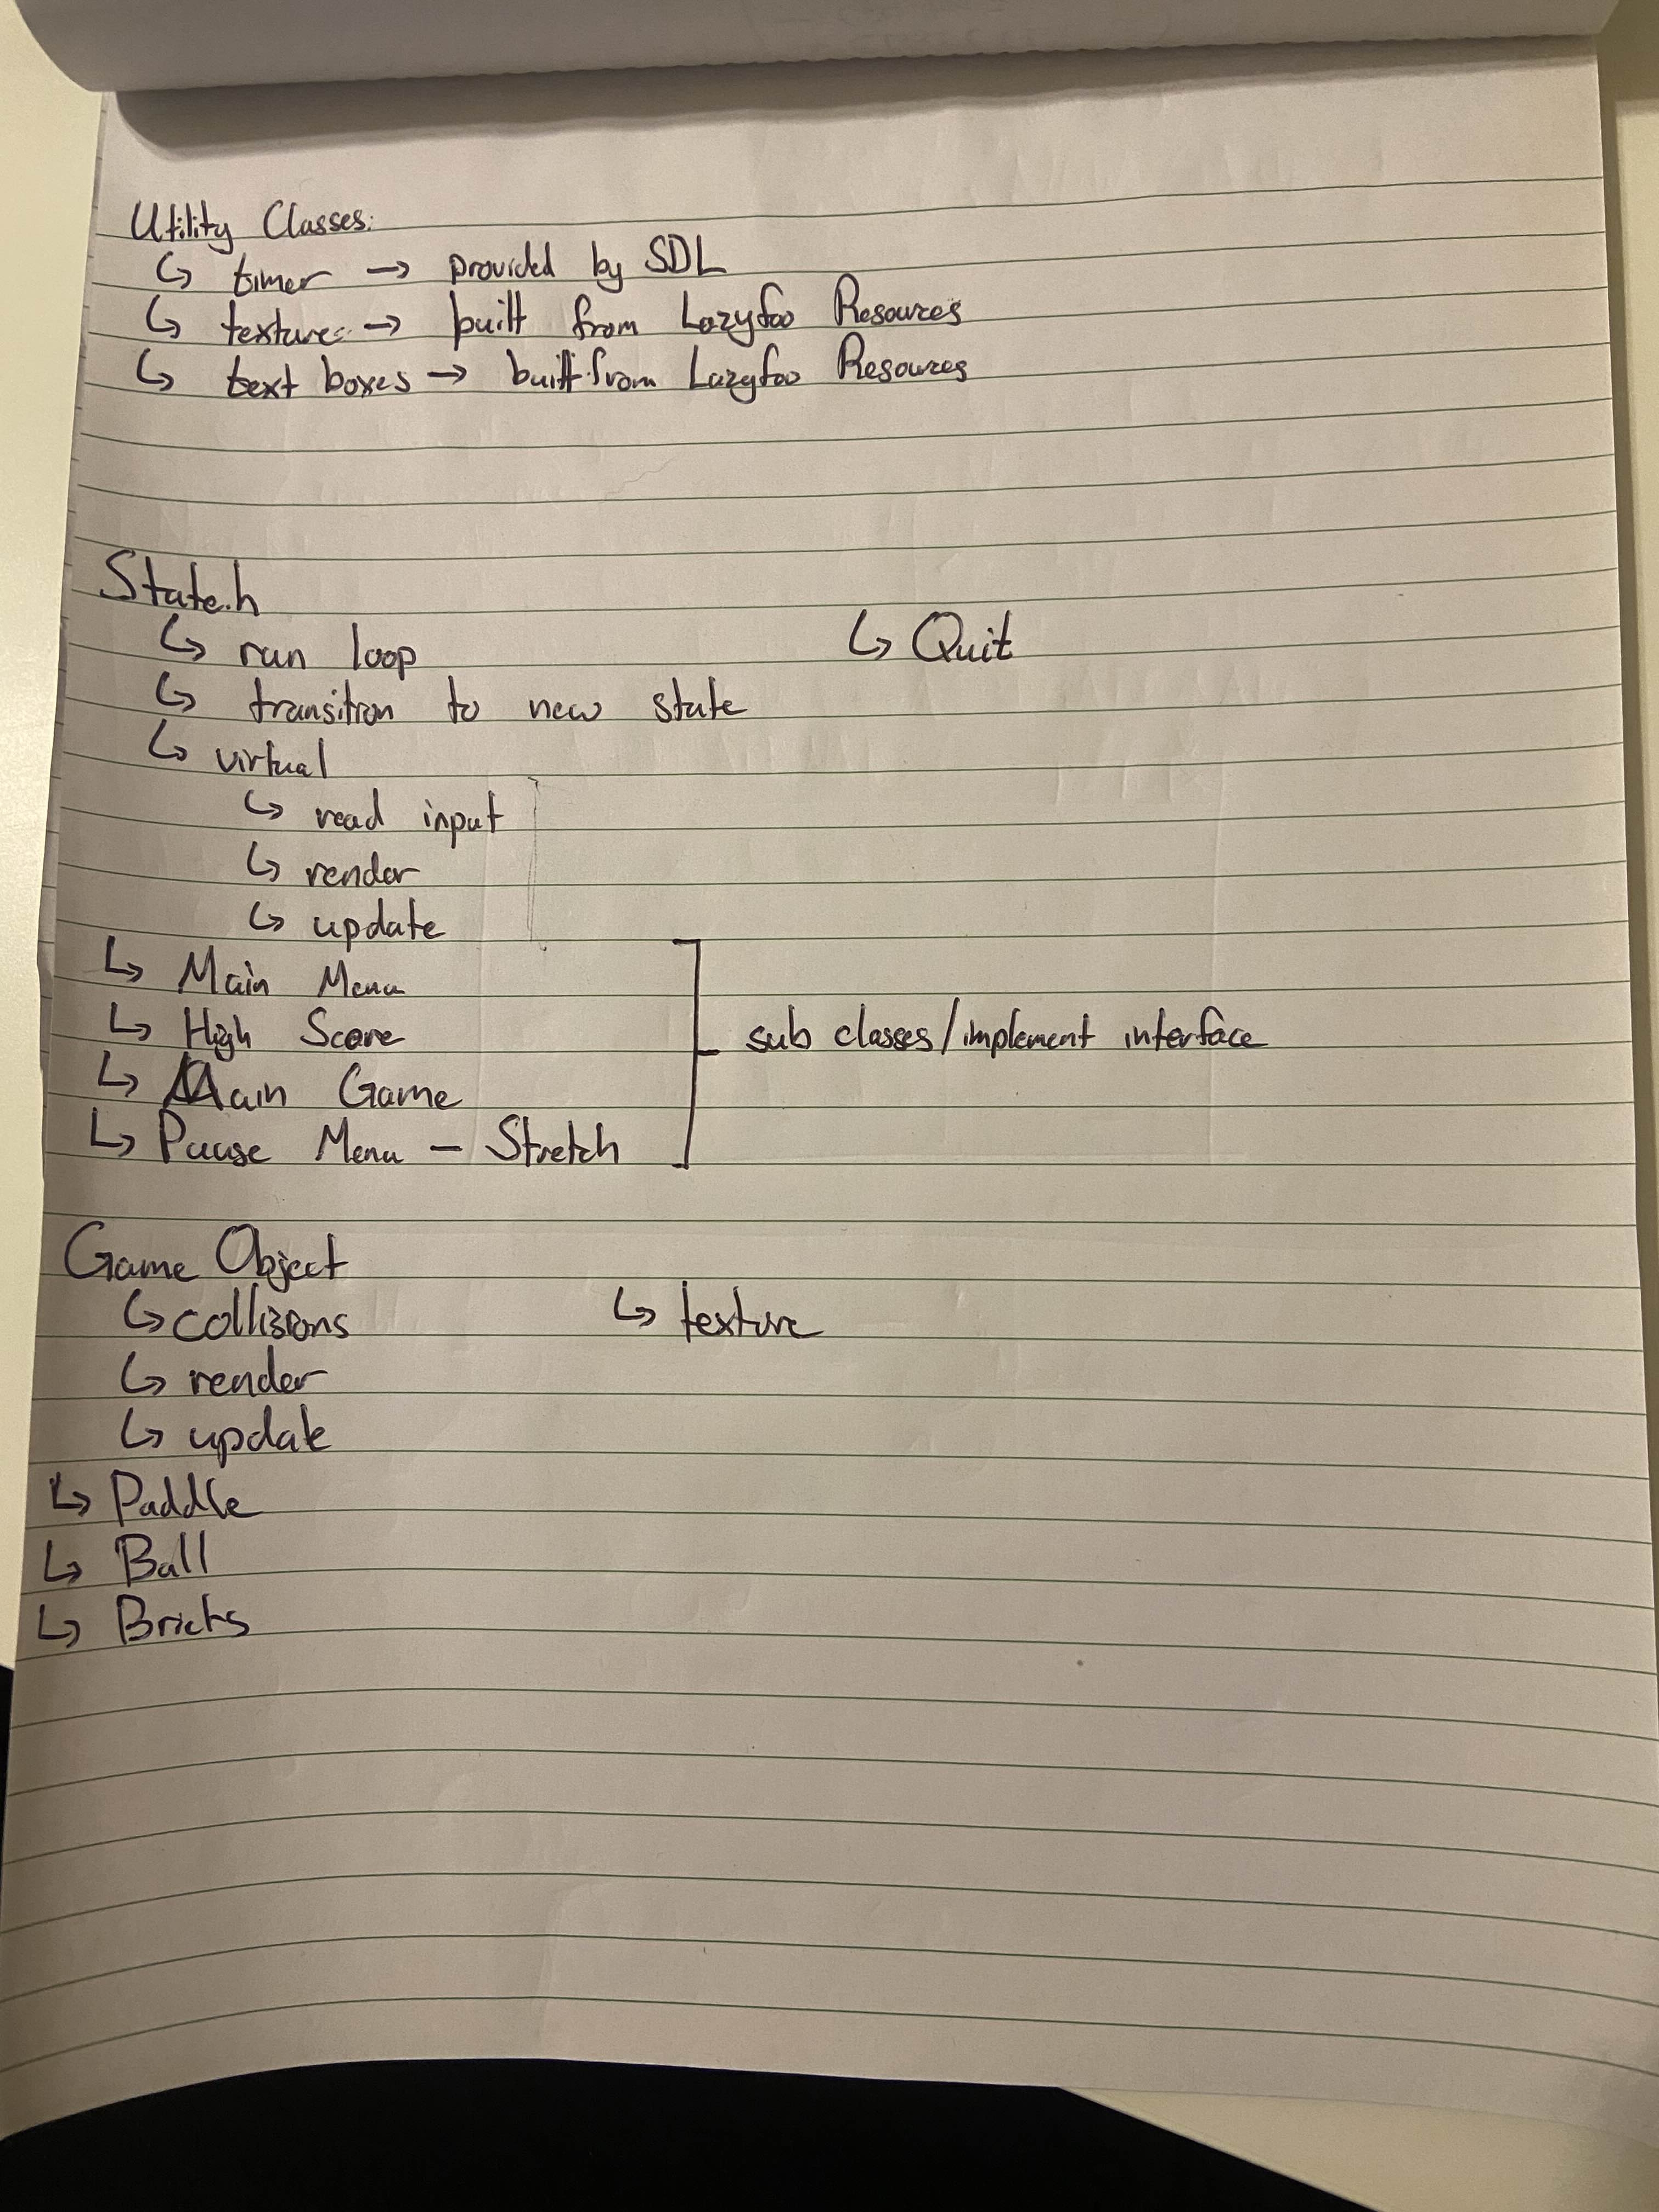 Utility Classes:
↳ timer → provided by SDL
↳ texture → built from Lazyfoo Resources
↳ text boxes → built from Lazyfoo Resources
State.h
↳ run loop ↳ Quit
↳ transition to new state
↳ virtual
↳ read input
↳ render
↳ update
↳ Main Menu
↳ High Score
sub classes/implement interface
↳ Main Game
↳ Pause Menu - Stretch
Game Object
↳ collisions ↳ texture
↳ render
↳ update
↳ Paddle
↳ Ball
↳ Bricks